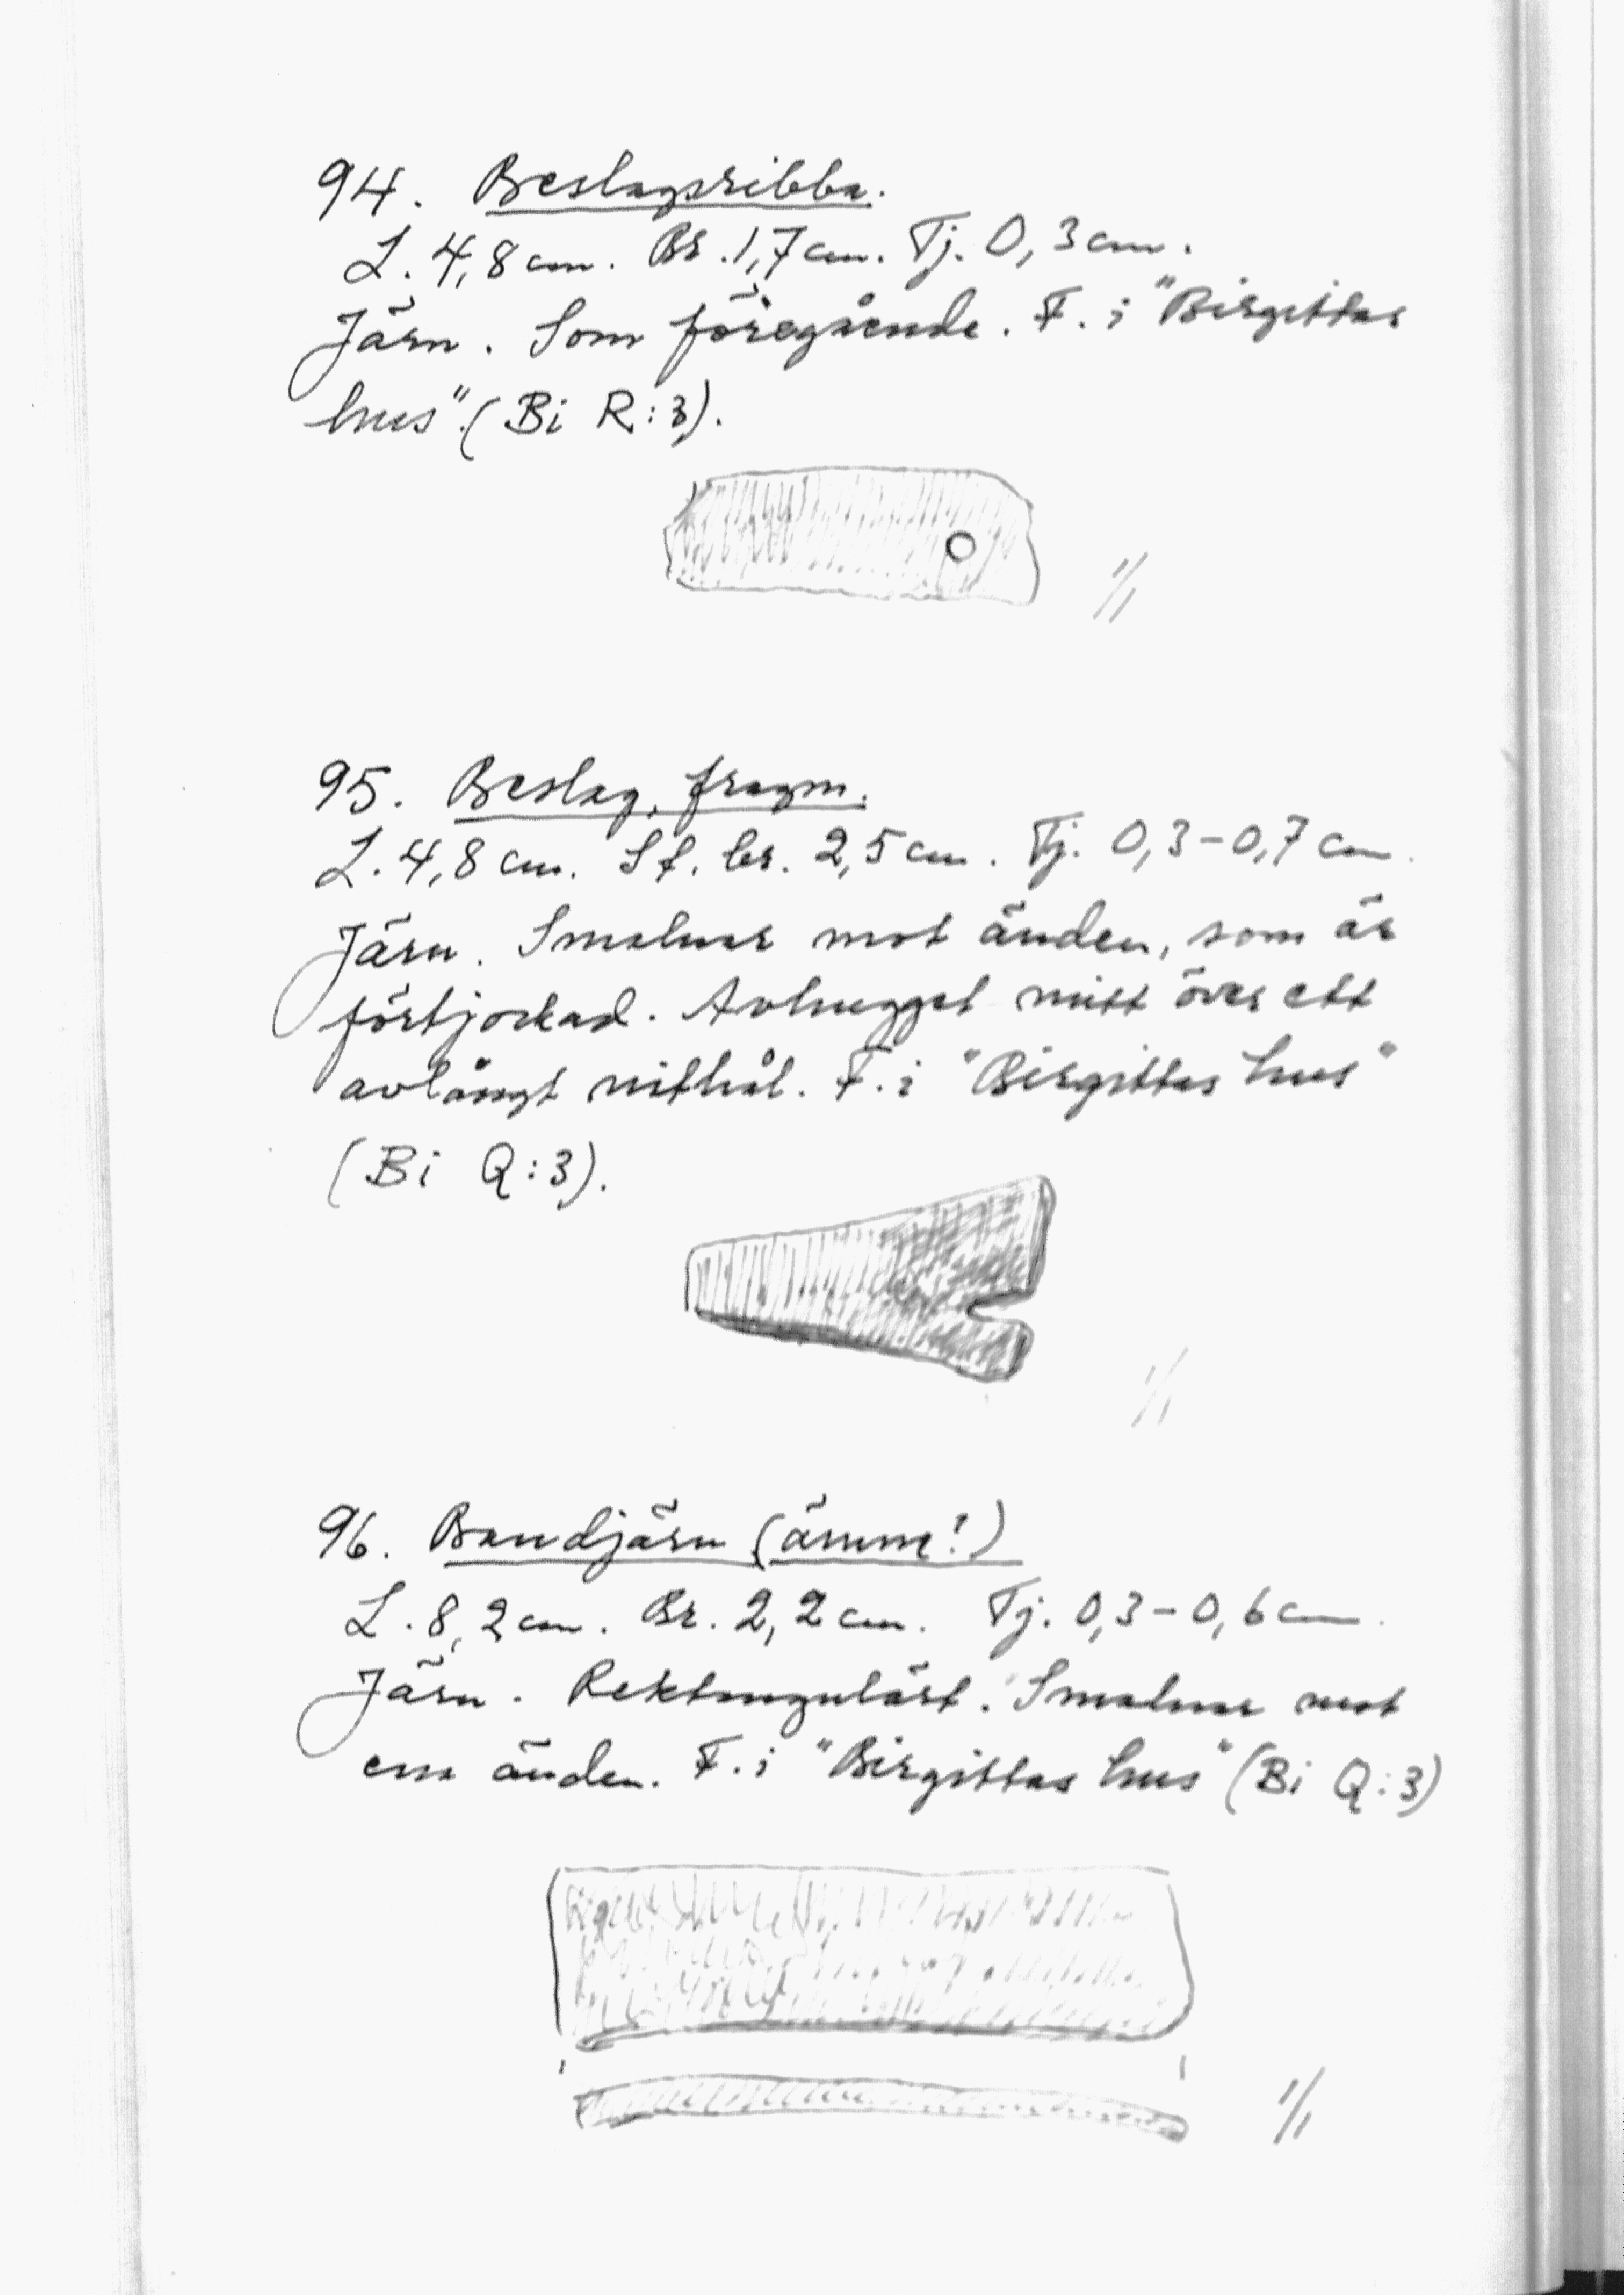 94. Beslagsribba.
L. 4,8 cm. Br. 1,7 cm. Tj. 0,3 cm.
Järn. Som föregående. F. i "Birgittas
hus". (Bi R:3).
1/1
95. Beslag, fragm.
L. 4,8 cm. St. br. 2,5 cm. Tj. 0,3-0,7 cm.
Järn. Smalnar mot änden, som är
förtjockad. Avhugget mitt över ett
avlångt nithål. F. i "Birgittas hus"
(Bi Q:3).
1/1
96. Bandjärn (ämne?)
L. 8,2 cm. Br. 2,2 cm. Tj. 0,3-0,6 cm.
Järn. Rektangulärt. Smalnar mot
ena änden. F. i "Birgittas hus" (Bi Q:3)
1/1